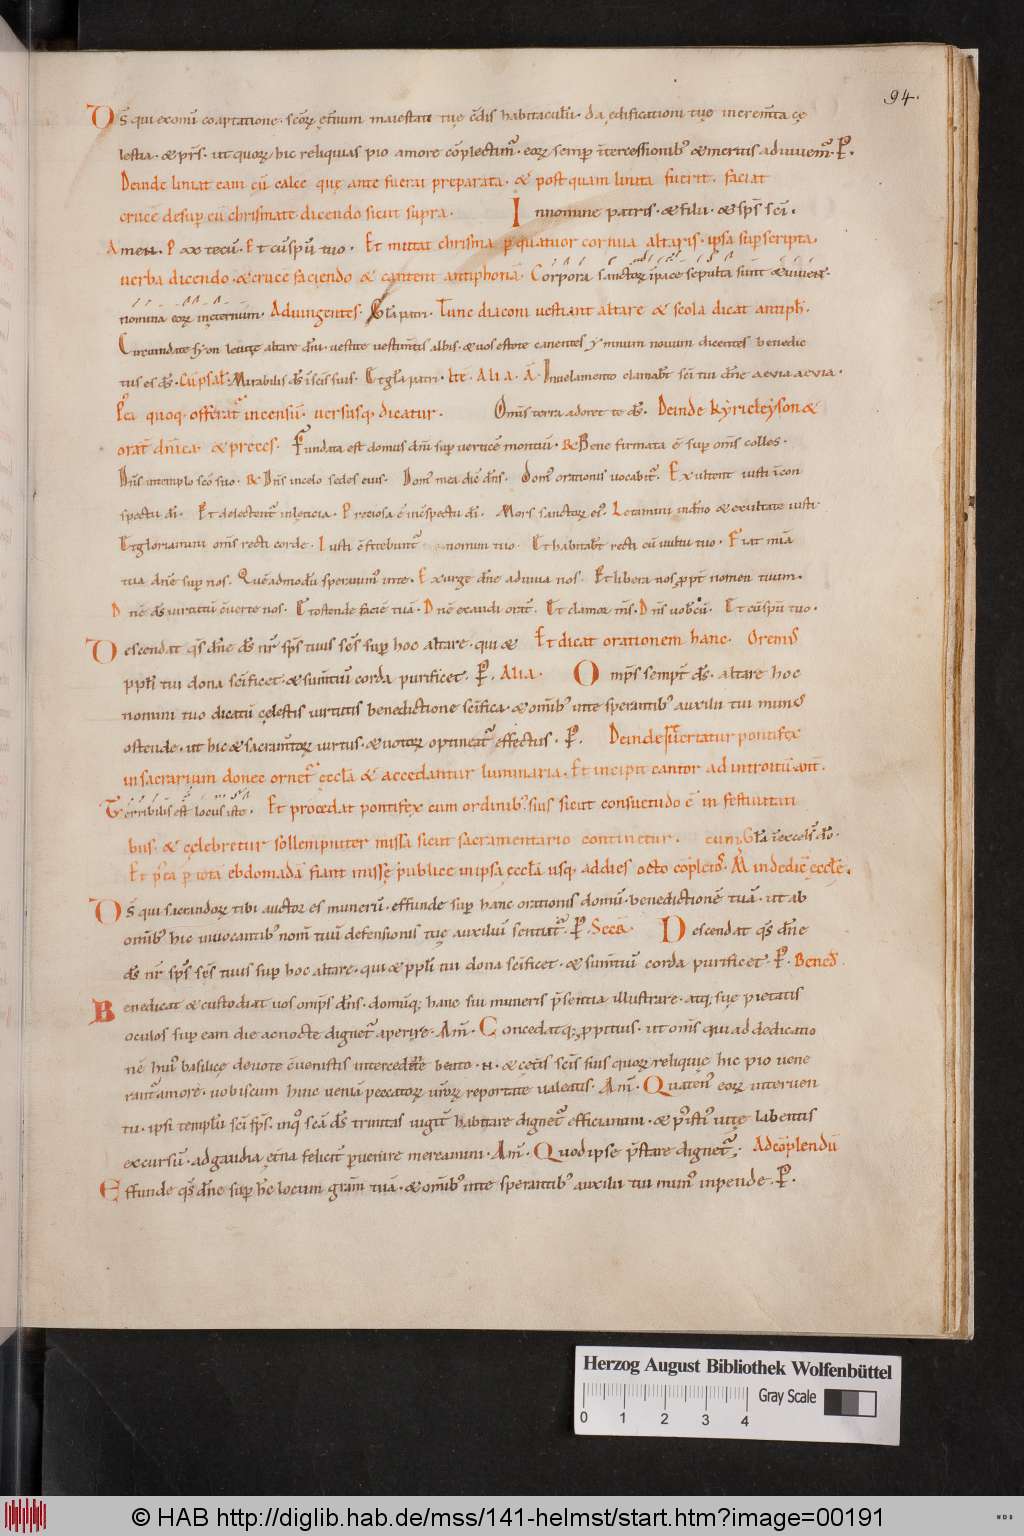 94.
Ds̄ qui ex omni coaptatione. scōꝝ ęt̄num maiestati tuę c̄dis habitaculū. da ędificationi tuę increm̄ta cę
lestia. & pr̄s. ut quoꝝ hic reliquias pio amore cōplectim̄. eoꝝ semp̄ īt̄cessionib; & meritis adiuuem̄. P̄.
Deinde liniat eam cū calce quę ante fuerat preparata. & postquam linita fuerit. faciat
crucē desup̄ cū chrismate dicendo sicut supra. In nomine patris. & filii. & sp̄s sc̄i.
Amen. Pax tecū. Et cū sp̄u tuo. Et mittat chrisma p̄ quatuor cornua altaris. ipsa sup̄scripta
uerba dicendo. & crucē faciendo & cantent antiphonā. Corpora sanctoꝝ ī pace sepulta sunt & uiuent
nomina eoꝝ in ęternū. Adiungentes. Gl̄a patri. Tunc diaconi uestiant altare & scola dicat antiph̄.
Circumdate syon leuitę altare dn̄i. uestite uestim̄tis albis. & uos estote canentes ymnum nouum dicentes benedic
tus es ds̄. Cū psal̄. Mirabilis ds̄ ī sc̄is suis. Et gl̄a patri. Alia. Ā. Inuolamento clamab̄t sc̄i tui dn̄e aevia aevia.
P̄ea quoq. offerat̄ incensū. uersusq. dicatur. Omīs terra adoret te ds̄. Deinde kyrieleyson &
orat̄ dn̄ica & preces. Fundata est domus dn̄i sup̄ uerticē montiū. & Bene firmata ē sup̄ om̄s colles.
Dn̄s in templo sc̄o suo. & Dn̄s in celo sedes eius. Dom̄ mea dic̄ dn̄s. Dom̄ orationis uocabit̄. Exultent iusti ī con
spectu dī. Et delectent̄ in letitia. Preciosa ē in c̄spectu dī. Mors sanctoꝝ ei̾. Letamini in dn̄o & exultate iusti
Et gloriamini om̄s recti corde. Iusti c̄fitebunt̄ nomini tuo. Et habitab̄t recti cū uultu tuo. Fiat mīa
tua dn̄e sup̄ nos. Quēadmodū sperauim̄ in te. Exurge dn̄e adiuua nos. Et libera nos p̄pt̄ nomen tuum.
Dn̄e ds̄ uirtutū c̄uerte nos. Et ostende faciē tuā. Dn̄e exaudi orat̄. Et clamor m̄s. Dn̄s uobc̄ū. Et cū sp̄u tuo.
Descendat qs̄ dn̄e ds̄ nr̄ sp̄s tuus sc̄s sup̄ hoc altare. qui & Et dicat orationem hanc. Oremus
ppl̄i tui dona sc̄ificet. & sum̄tiū corda purificet. P̄. Alia. Omp̄s semp̄t̄ ds̄. altare hoc
nomini tuo dicatū cęlestis uirtutis benedictione sc̄ifica. & omīb; in te sperantib; auxilii tui mun̄
ostende. ut hic & sacram̄toꝝ uirtus. & uotoꝝ optineat̄ effectus. P̄. Deinde reuertatur pontifex
in sacrarium donec ornet̄ ęccl̄a & accedantur luminaria. Et incipit cantor ad introitū ant̄.
Terribilis est locus iste. Et procedat pontifex cum ordinib; suis sicut consuetudo ē in festiuitati
bus. & cęlebretur sollempniter missa sicut sacramentario continetur. cum Gl̄a in excels̄ dō.
Et p̄ea p̄ totā ebdomadā fiant missę publicę in ipsa ęccl̄a usq. ad dies octo cōpletos. M̄ in dedic̄ ęccl̄ę.
Ds̄ qui sacrandoꝝ tibi auctor es munerū. effunde sup̄ hanc orationis domū. benedictionē tuā. ut ab
omīb; hic inuocantib; nom̄ tuū defensionis tuę auxiliū sentiat̄. P̄. Sec̄a. Descendat qs̄ dn̄e
ds̄ nr̄ sp̄s sc̄s tuus sup̄ hoc altare. qui & ppl̄i tui dona sc̄ificet. & sum̄tiū corda purificet. P̄. Bened̄.
Benedicat & custodiat uos omp̄s dn̄s. domūq; hanc sui muneris p̄sentia illustrare. atq; suę pietatis
oculos sup̄ eam die ac nocte dignet̄ aperire. Am̄. Concedatq; p̄pitius. ut om̄s qui ad dedicatio
nē hui̾ basilicę deuote c̄uenistis intercedente beato. N. & cęt̄is sc̄is suis quoꝝ reliquię hic pio uene
rant̄ amore. uobiscum hinc ueniā peccatoꝝ ur̄oꝝ reportare ualeatis. Am̄. Quatenꝰ eoꝝ interuen
tu. ipsi templū sc̄i sp̄s. in q̊ sc̄a ds̄ trinitas iugit̄ habitare dignet̄ efficiamini. & p̾ isti̾ uitę labentis
excursū. ad gaudia ęt̄na felicit̄ p̄uenire mereamini. Am̄. Quod ipse p̄stare dignet̄; Ad cōplendū
Effunde qs̄ dn̄e sup̄ hc̄ locum gram̄ tuā. & omīb; in te sperantib; auxilii tui mun̄ inpende. P̄.
Herzog August Bibliothek Wolfenbüttel
0 1 2 3 4 Gray Scale
© HAB http://diglib.hab.de/mss/141-helmst/start.htm?image=00191